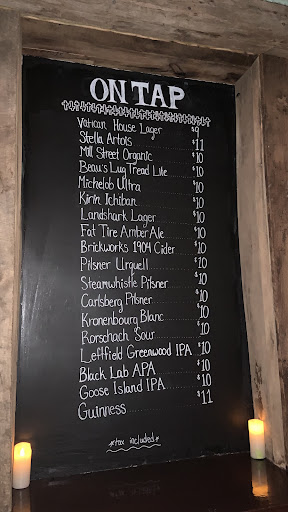 ON TAP
Vatican House Lager $9
Stella Artois $11
Mill Street Organic $10
Beau's Lug Tread Lite $10
Michelob Ultra $10
Kirin Ichiban $10
Landshark Lager $10
Fat Tire Amber Ale $10
Brickworks 1904 Cider $10
Pilsner Urquell $10
Steamwhistle Pilsner $10
Carlsberg Pilsner $10
Kronenbourg Blanc $10
Rorschach Sour $10
Leftfield Greenwood IPA $10
Black Lab APA $10
Goose Island IPA $10
Guinness $11
*tax included*